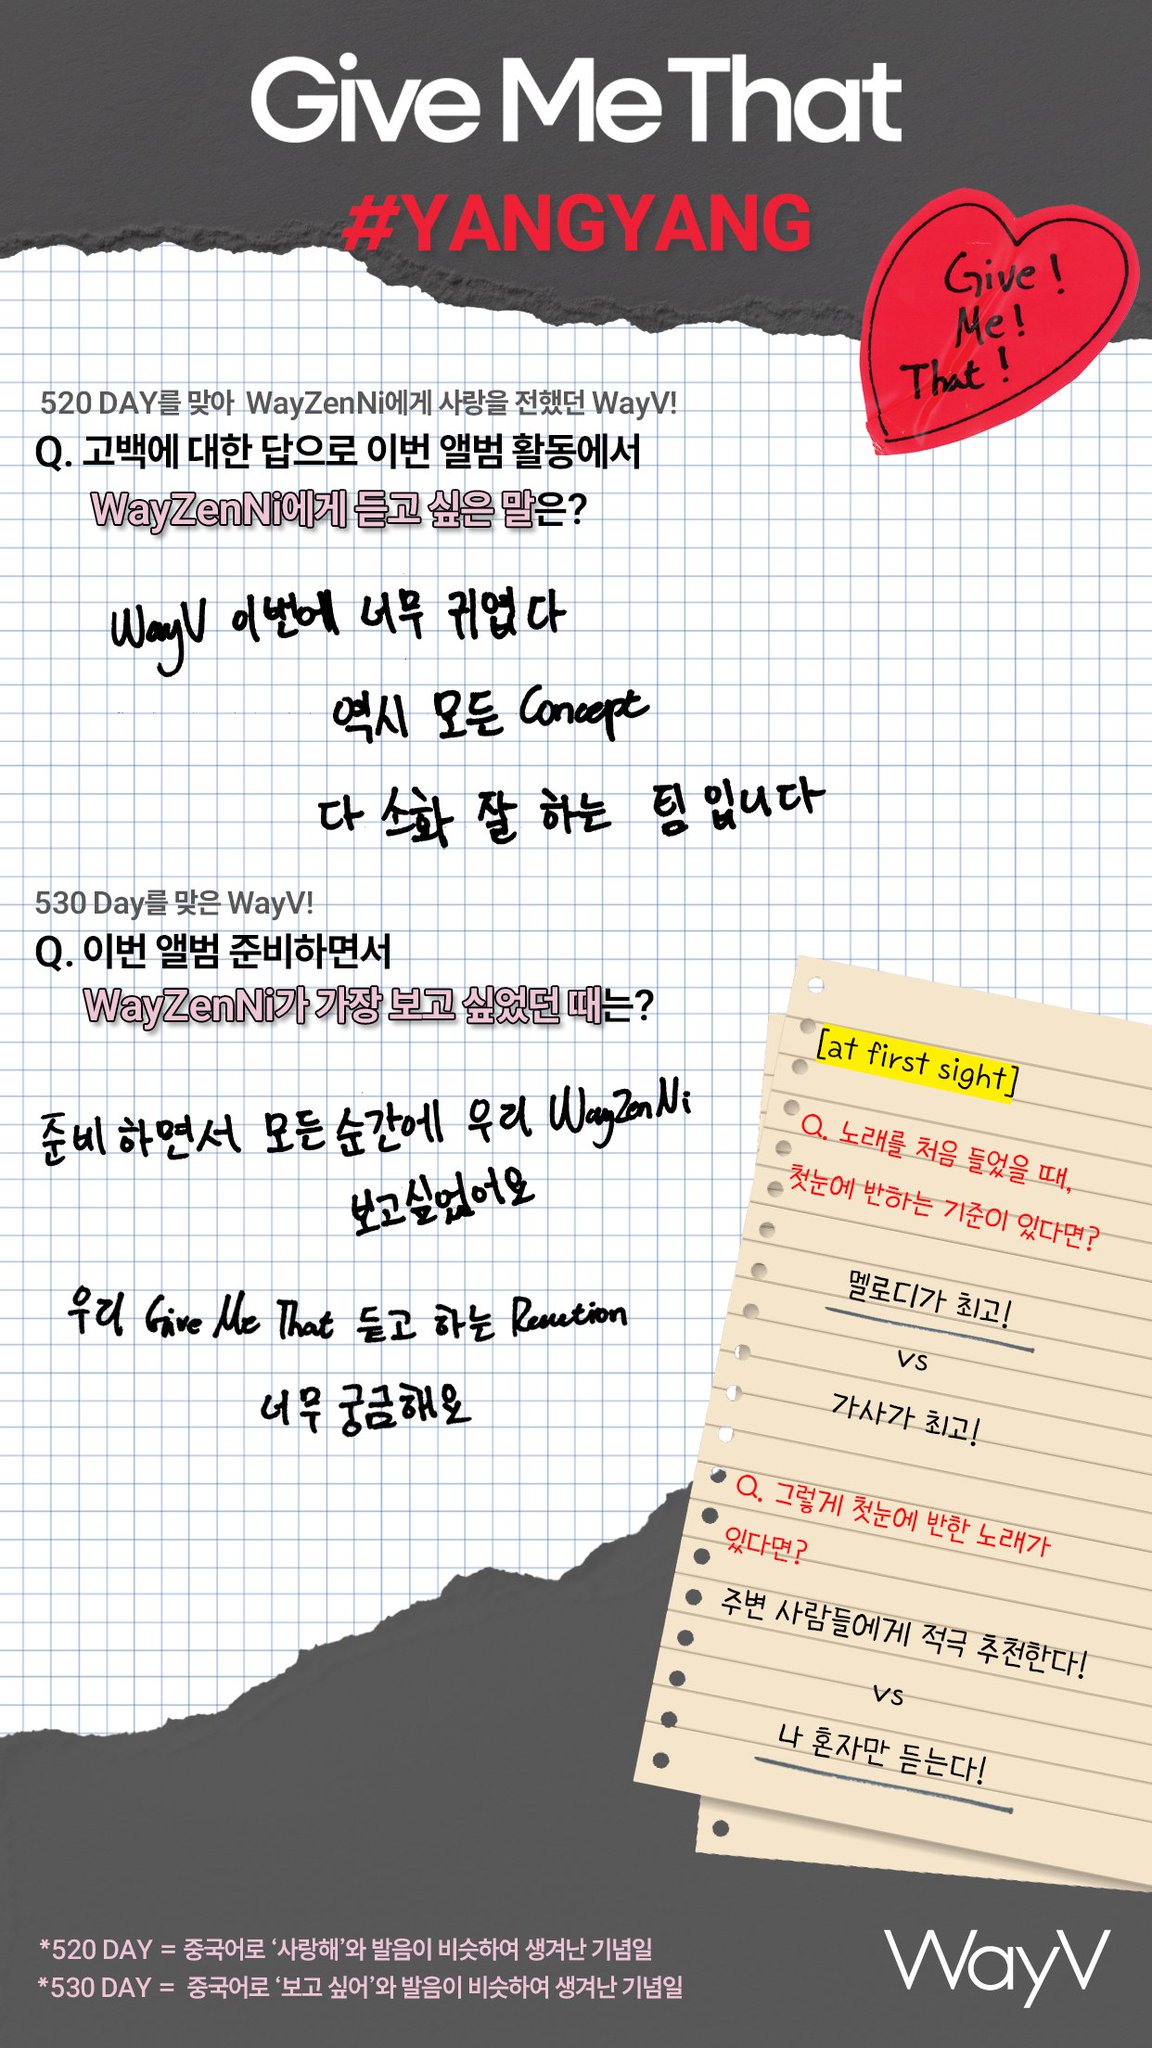 Give Me That
#YANGYANG
Give!
Me!
That!
520 DAY를 맞아 WayZenNi에게 사랑을 전했던 WayV!
Q. 고백에 대한 답으로 이번 앨범 활동에서
WayZenNi에게 듣고 싶은 말은?
WayV 이번에 너무 귀엽다
역시 모든 Concept
다 소화 잘 하는 팀입니다
530 Day를 맞은 WayV!
Q. 이번 앨범 준비하면서
WayZenNi가 가장 보고 싶었던 때는?
준비하면서 모든 순간에 우리 WayZenNi
보고싶었어요
우리 Give Me That 듣고 하는 Reaction
너무 궁금해요
[at first sight]
Q. 노래를 처음 들었을 때,
첫눈에 반하는 기준이 있다면?
멜로디가 최고!
vs
가사가 최고!
Q. 그렇게 첫눈에 반한 노래가
있다면?
주변 사람들에게 적극 추천한다!
vs
나 혼자만 듣는다!
*520 DAY = 중국어로 ‘사랑해’와 발음이 비슷하여 생겨난 기념일
*530 DAY = 중국어로 ‘보고 싶어’와 발음이 비슷하여 생겨난 기념일
WayV